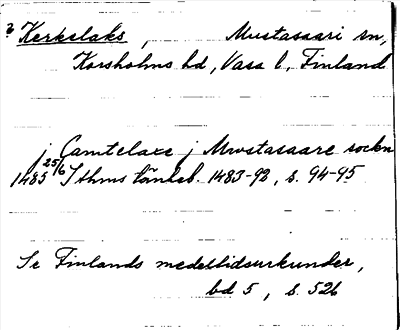 ? Kerkelaks, Mustasaari sn,
Korsholms hd, Vasa l, Finland
j Gamtelaxe j Mwstasaare sockn
1485 25/6 Sthms tänkeb. 1483-92, s. 94-95
Se Finlands medeltidsurkunder,
bd 5, s. 526